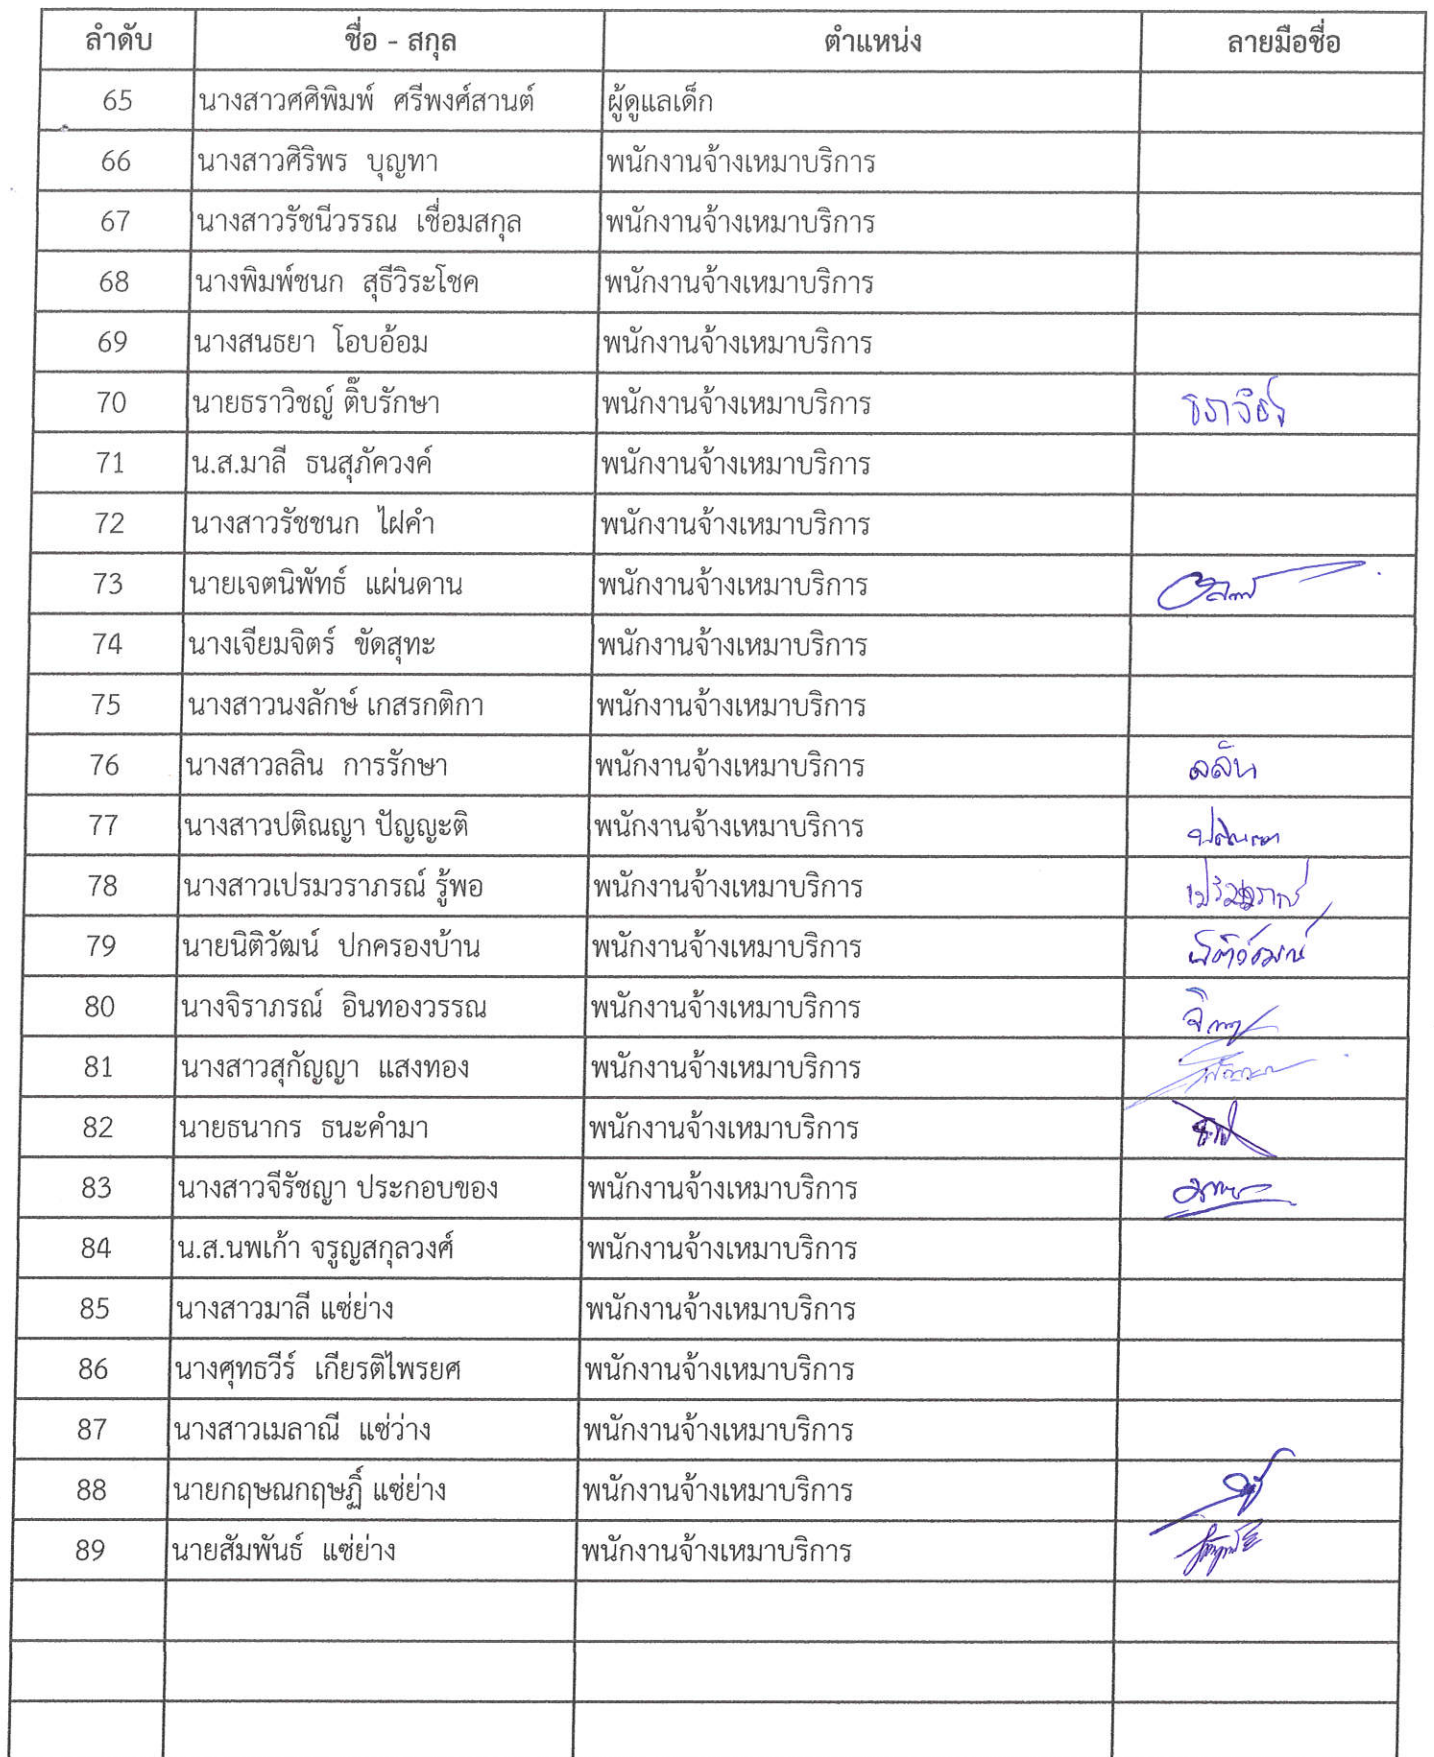 ลำดับ ชื่อ - สกุล ตำแหน่ง ลายมือชื่อ
65 นางสาวศศิพิมพ์ ศรีพงศ์สานต์ ผู้ดูแลเด็ก
66 นางสาวศิริพร บุญทา พนักงานจ้างเหมาบริการ
67 นางสาวรัชนีวรรณ เชื่อมสกุล พนักงานจ้างเหมาบริการ
68 นางพิมพ์ชนก สุธีวิระโชค พนักงานจ้างเหมาบริการ
69 นางสนธยา โอบอ้อม พนักงานจ้างเหมาบริการ
70 นายธราวิชญ์ ติ๊บรักษา พนักงานจ้างเหมาบริการ
71 น.ส.มาลี ธนสุภัควงค์ พนักงานจ้างเหมาบริการ
72 นางสาวรัชชนก ไฝคำ พนักงานจ้างเหมาบริการ
73 นายเจตนิพัทธ์ แผ่นดาน พนักงานจ้างเหมาบริการ
74 นางเจียมจิตร์ ขัดสุทะ พนักงานจ้างเหมาบริการ
75 นางสาวนงลักษ์ เกสรกติกา พนักงานจ้างเหมาบริการ
76 นางสาวลลิน การรักษา พนักงานจ้างเหมาบริการ ลลิน
77 นางสาวปติณญา ปัญญะติ พนักงานจ้างเหมาบริการ
78 นางสาวเปรมวราภรณ์ รู้พอ พนักงานจ้างเหมาบริการ เปรมวราภรณ์
79 นายนิติวัฒน์ ปกครองบ้าน พนักงานจ้างเหมาบริการ นิติวัฒน์
80 นางจิราภรณ์ อินทองวรรณ พนักงานจ้างเหมาบริการ
81 นางสาวสุกัญญา แสงทอง พนักงานจ้างเหมาบริการ
82 นายธนากร ธนะคำมา พนักงานจ้างเหมาบริการ
83 นางสาวจีรัชญา ประกอบของ พนักงานจ้างเหมาบริการ
84 น.ส.นพเก้า จรูญสกุลวงศ์ พนักงานจ้างเหมาบริการ
85 นางสาวมาลี แซ่ย่าง พนักงานจ้างเหมาบริการ
86 นางศุทธวีร์ เกียรติไพรยศ พนักงานจ้างเหมาบริการ
87 นางสาวเมลาณี แซ่ว่าง พนักงานจ้างเหมาบริการ
88 นายกฤษณกฤษฏิ์ แซ่ย่าง พนักงานจ้างเหมาบริการ
89 นายสัมพันธ์ แซ่ย่าง พนักงานจ้างเหมาบริการ